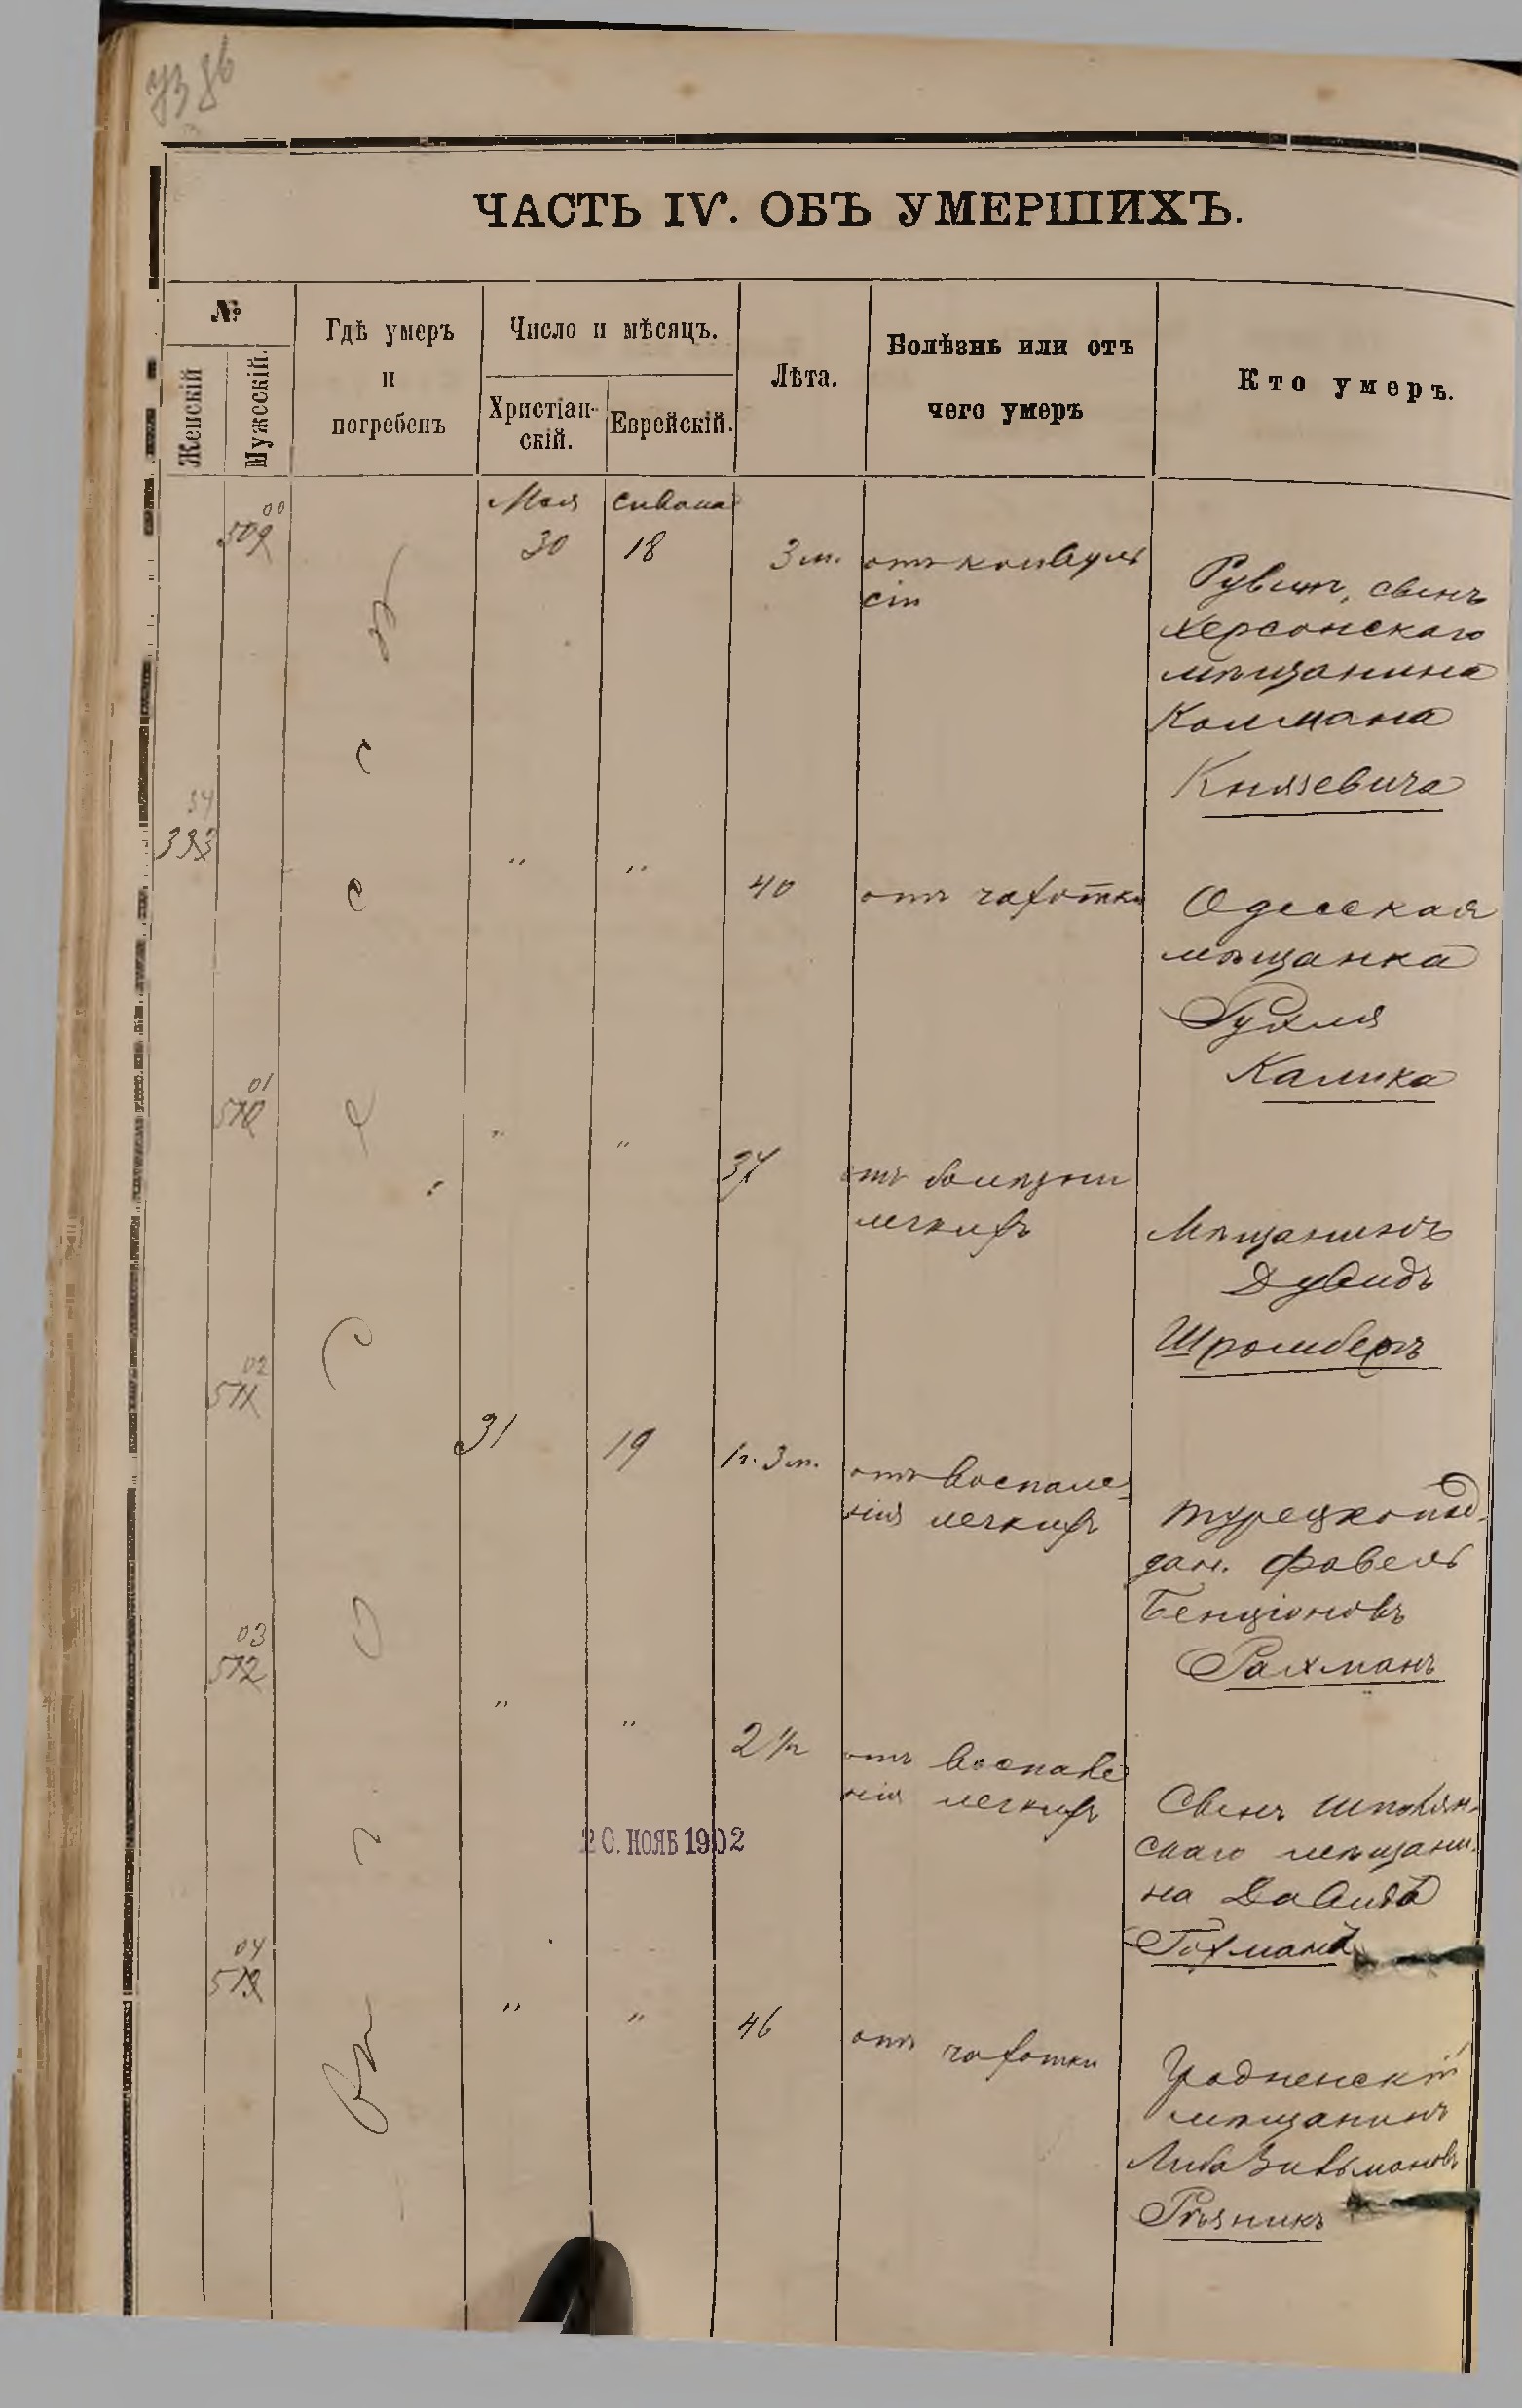 ЧАСТЬ IV. ОБЪ УМЕРШИХЪ.
№
Женскій
Мужескій.
Гдѣ умеръ
и
погребенъ
Число и мѣсяцъ.
Христіан-
скій.
Еврейскій.
Лѣта.
Болѣзнь или отъ
чего умеръ
Кто умеръ.
Мая Сивана
00
509
30 18 3 м. отъ конвуль
сіи
Рувинъ, сынъ
Херсонскаго
мѣщанина
Калмана
Князевича
34
333
" " 40 отъ чахотки
Одесская
мѣщанка
Рухля
Калика
01
510
" " 34 отъ болѣзни
легкихъ
Мѣщанинъ
Дувидъ
Шромберъ
02
511
31 19 1 г. 3 м. отъ воспале-
нія легкихъ
турецкопод-
дан. Фавель
Бенціоновъ
Рахманъ
03
512
" " 2 1/2 отъ воспале
нія легкихъ
Сынъ Шполян-
скаго мѣщани-
на Давида
Гохмана
20. НОЯБ 1902
04
513
" " 46 отъ чахотки
Гродненскій
мѣщанинъ
Либа Зильмановъ
Рѣзникъ